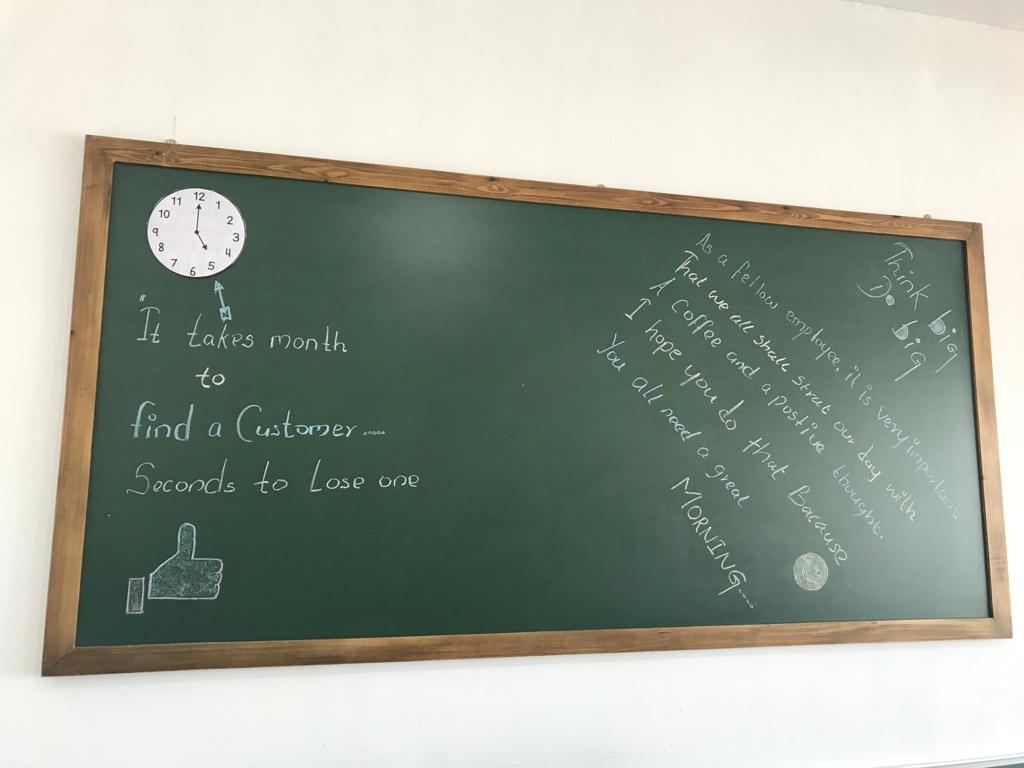 12
1
2
3
4
5
6
7
8
9
10
11
"It takes month
to
find a Customer.....
Seconds to Lose one
Think big
Do big
As a fellow employee, it is very important
That we all shall strat our day with
A Coffee and a postive thought.
I hope you do that Bacause
You all need a great
MORNING....